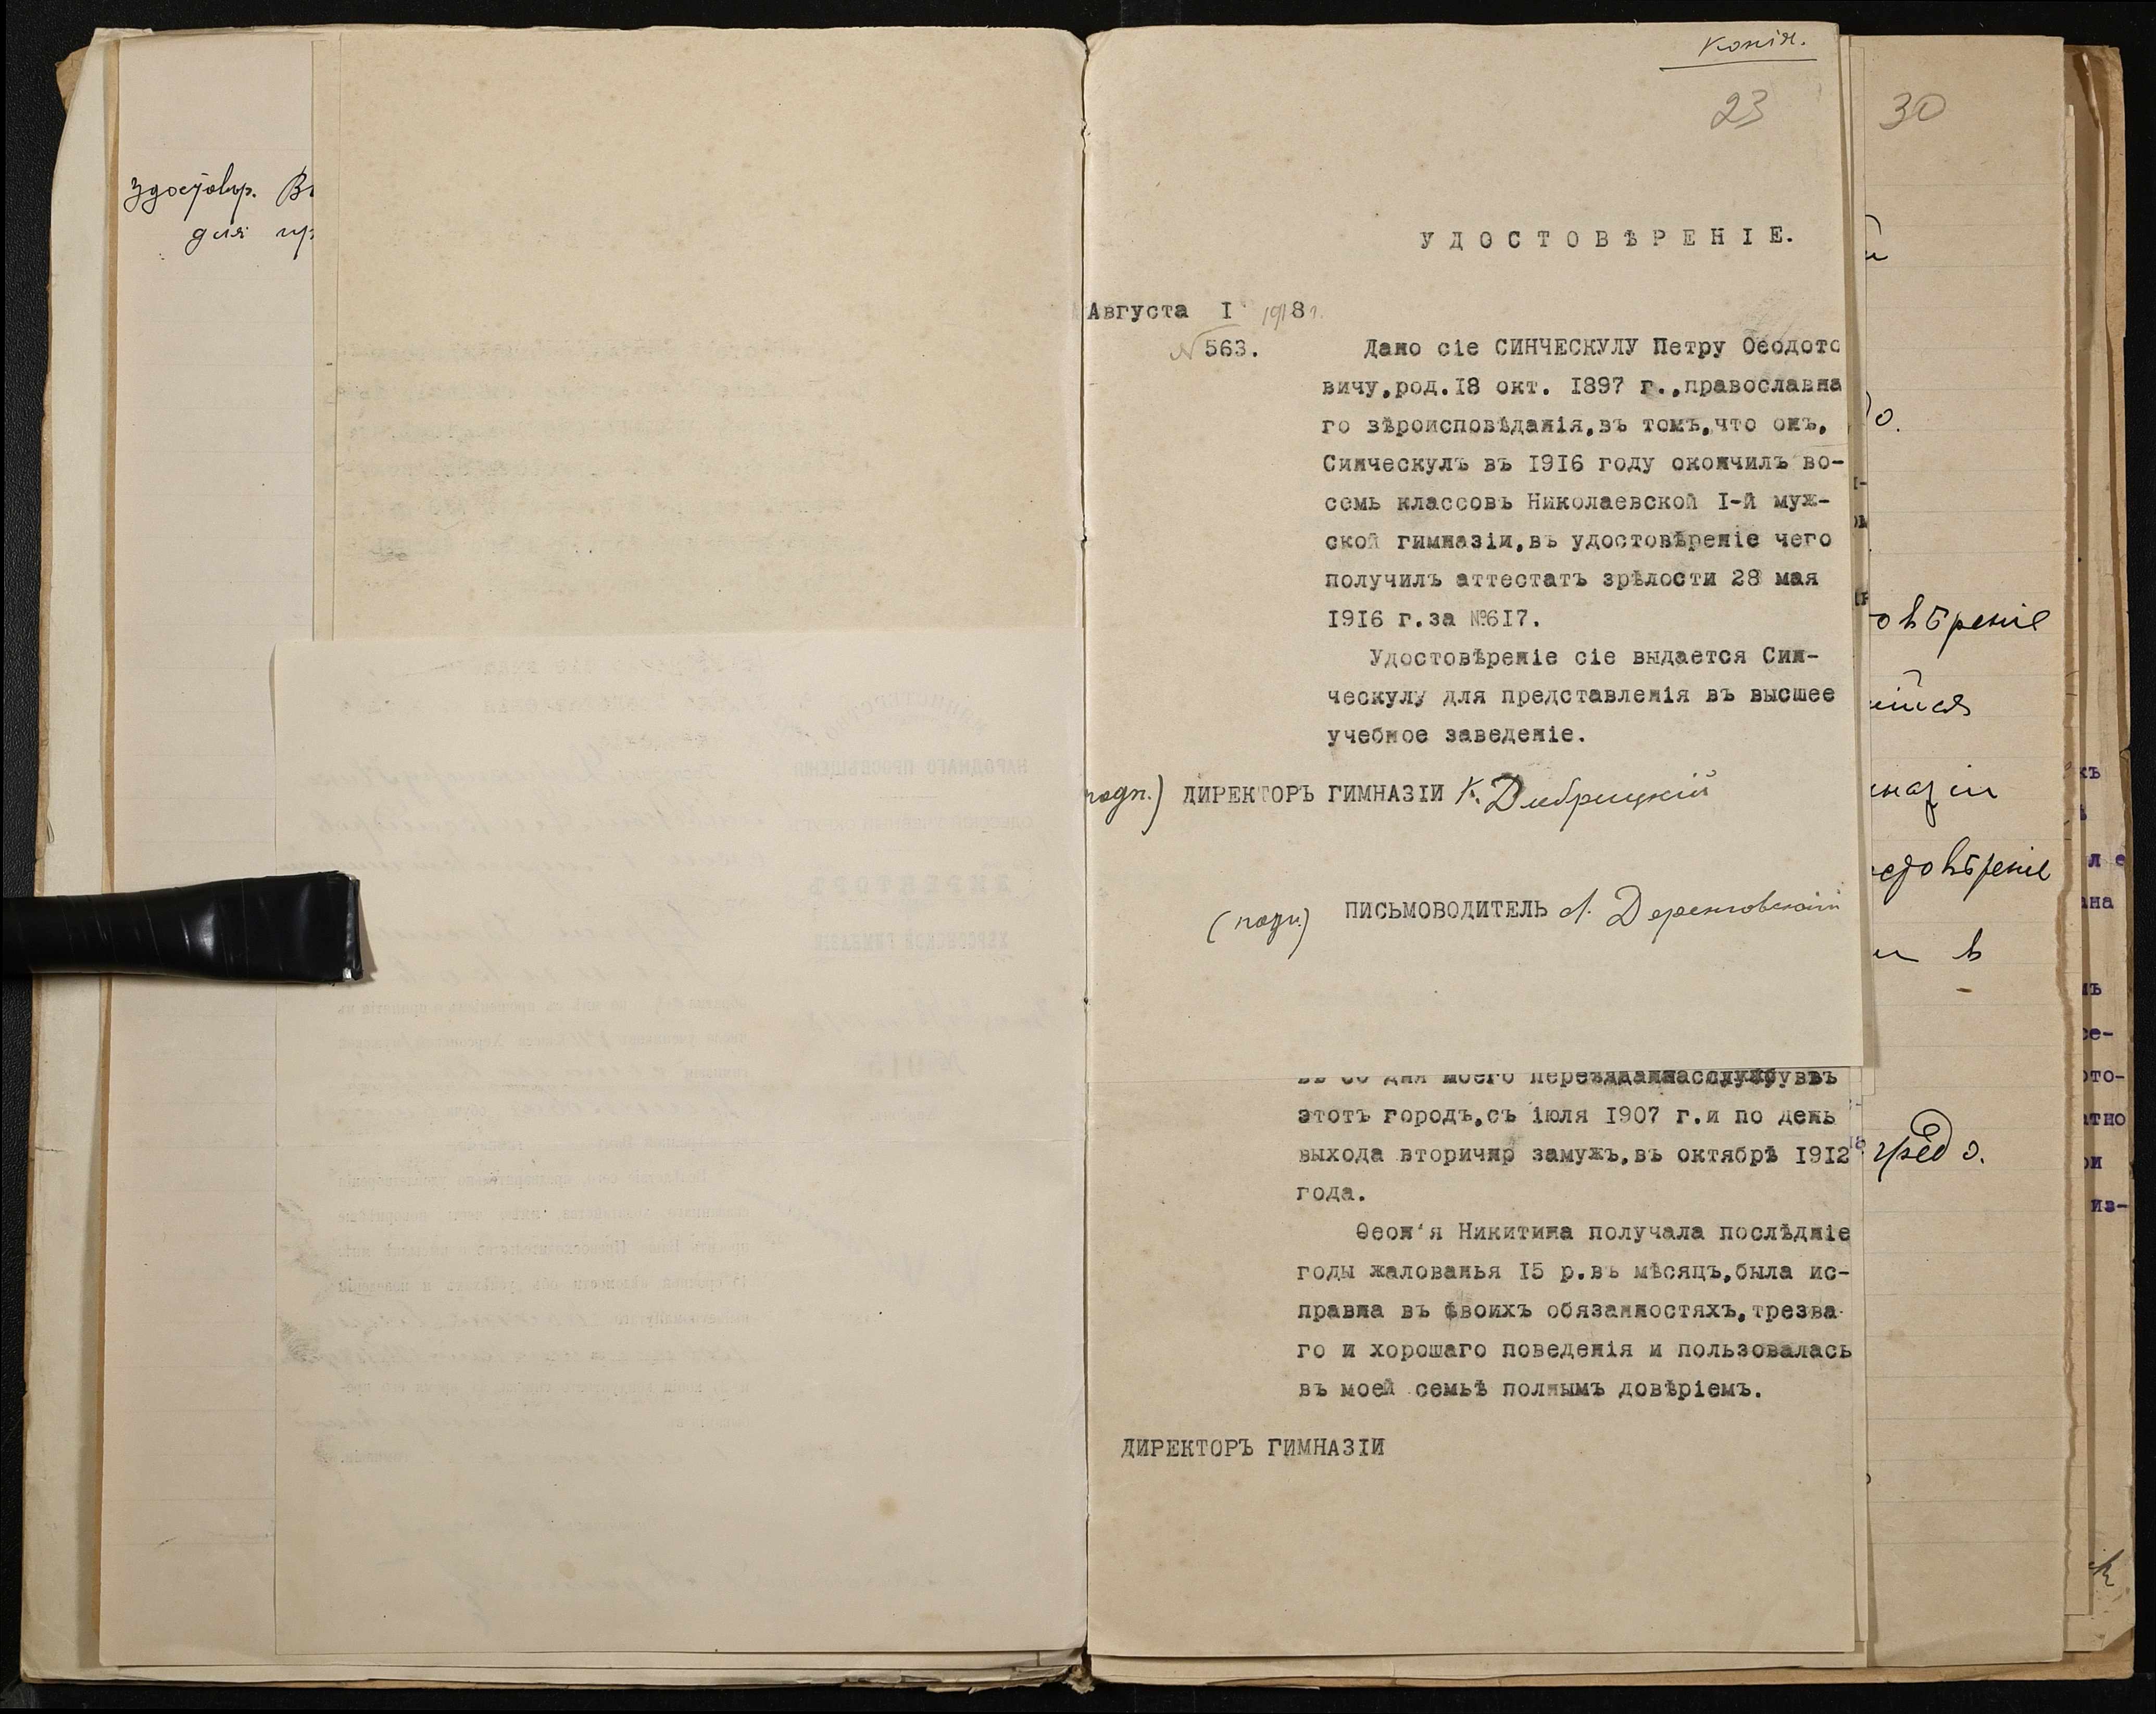 удостовѣр. Въ
для пр
Копія.
23
30
УДОСТОВѢРЕНІЕ.
Августа I 1918 г.
№ 563.
Дано сіе СИНЧЕСКУЛУ Петру Ѳеодото
вичу,род.I8 окт. I897 г.,православна
го вѣроисповѣданія,въ томъ,что онъ,
Синческулъ въ I9I6 году окончилъ во-
семь классовъ Николаевской I-й муж-
ской гимназіи,въ удостовѣреніе чего
получилъ аттестатъ зрѣлости 28 мая
I9I6 г.за №6I7.
Удостовѣреніе сіе выдается Син-
ческулу для представленія въ высшее
учебное заведеніе.
подп.) ДИРЕКТОРЪ ГИМНАЗІИ К.
(подп.) ПИСЬМОВОДИТЕЛЬ
этотъ городъ,съ іюля I907 г.и по день
выхода вторичнр замужъ,въ октябрѣ I9I2
года.
Ѳеон'я Никитина получала послѣдніе
годы жалованья I5 р.въ мѣсяцъ,была ис-
правна въ своихъ обязанностяхъ,трезва
го и хорошаго поведенія и пользовалась
въ моей семьѣ полнымъ довѣріемъ.
ДИРЕКТОРЪ ГИМНАЗІИ
овѣреніе
ийся
назіи
стовѣреніе
и в
л е
ана
се-
ото-
атно
ри
из-